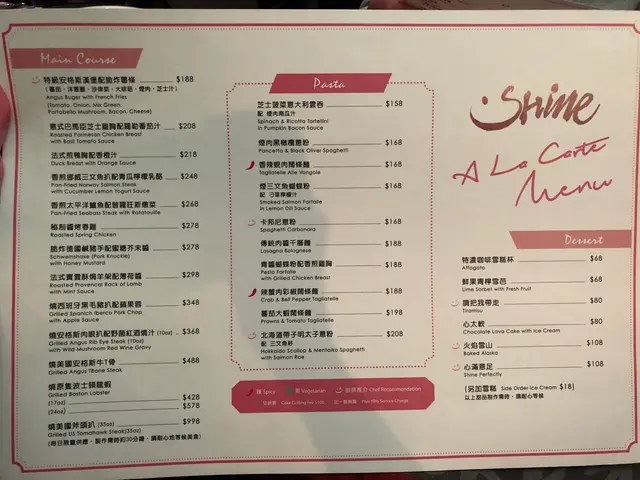 Main Course
特級安格斯漢堡配脆炸薯條 $188
Angus Burger with French Fries
(Tomato, Onion, Mix Green,
Portabello Mushroom, Bacon, Cheese)
意式巴馬臣芝士雞胸配羅勒蕃茄汁 $208
Roasted Parmesan Chicken Breast
with Basil Tomato Sauce
法式煎鴨胸配香橙汁 $218
Duck Breast with Orange Sauce
香煎挪威三文魚扒配青瓜檸檬乳酪 $248
Pan-Fried Norway Salmon Steak
with Cucumber Lemon Yogurt Sauce
香煎太平洋鱸魚配普羅旺斯燉菜 $268
Pan-Fried Seabass Steak with Ratatouille
秘制醬烤春雞 $278
Roasted Spring Chicken
脆炸德國鹹豬手配蜜糖芥末醬 $278
Schweinshaxe (Pork Knuckle)
with Honey Mustard
法式寶雲酥焗羊架配薄荷醬 $298
Roasted Provencal Rack of Lamb
with Mint Sauce
燒西班牙黑毛豬扒配蘋果蓉 $348
Grilled Spanish Iberico Pork Chop
with Apple Sauce
燒安格斯肉眼扒配野菌紅酒燒汁 (10oz) $368
Grilled Angus Rib Eye Steak (10oz)
with Wild Mushroom Red Wine Gravy
燒美國安格斯牛T骨 $488
Grilled Angus TBone Steak
燒原隻波士頓龍蝦
Grilled Boston Lobster
(17oz) $428
(24oz) $578
燒美國斧頭扒 (35oz) $998
Grilled US Tomahawk Steak(35oz)
(每日限量供應，製作需時約30分鐘，請耐心地等候美食)
Pasta
芝士菠菜意大利雲吞 $158
配 煙肉南瓜汁
Spinach & Ricotta Tortellini
in Pumpkin Bacon Sauce
煙肉黑橄欖意粉 $168
Pancetta & Black Oliver Spaghetti
香辣蜆肉闊條麵 $168
Tagliatelle Alle Vongole
煙三文魚蝴蝶粉 $168
配 刁草檸檬汁
Smoked Salmon Farfalle
in Lemon Dill Sauce
卡邦尼意粉 $168
Spaghetti Carbonara
傳統肉醬千層麵 $188
Lasagna Bolognese
青醬蝴蝶粉配香煎雞胸 $188
Pesto Farfalle
with Grilled Chicken Breast
辣蟹肉彩椒闊條麵 $188
Crab & Bell Pepper Tagliatelle
蕃茄大蝦闊條麵 $198
Prawns & Tomato Tagliatelle
北海道帶子明太子意粉 $208
配 三文魚籽
Hokkaido Scallop & Mentaiko Spaghetti
with Salmon Roe
辣 Spicy 素 Vegetarian 廚師推介 Chef Recommendation
Plus 10% Service Charge
Shine
A La Carte
Menu
Dessert
特濃咖啡雪糕杯 $68
Affogato
鮮果青檸雪芭 $68
Lime Sorbet with Fresh Fruit
請把我帶走 $80
Tiramisu
心太軟 $80
Chocolate Lava Cake with Ice Cream
火焰雪山 $108
Baked Alaska
心滿意足 $108
Shine Perfectly
(另加雪糕 Side Order Ice Cream $18)
以上甜品製作需時，請耐心等候